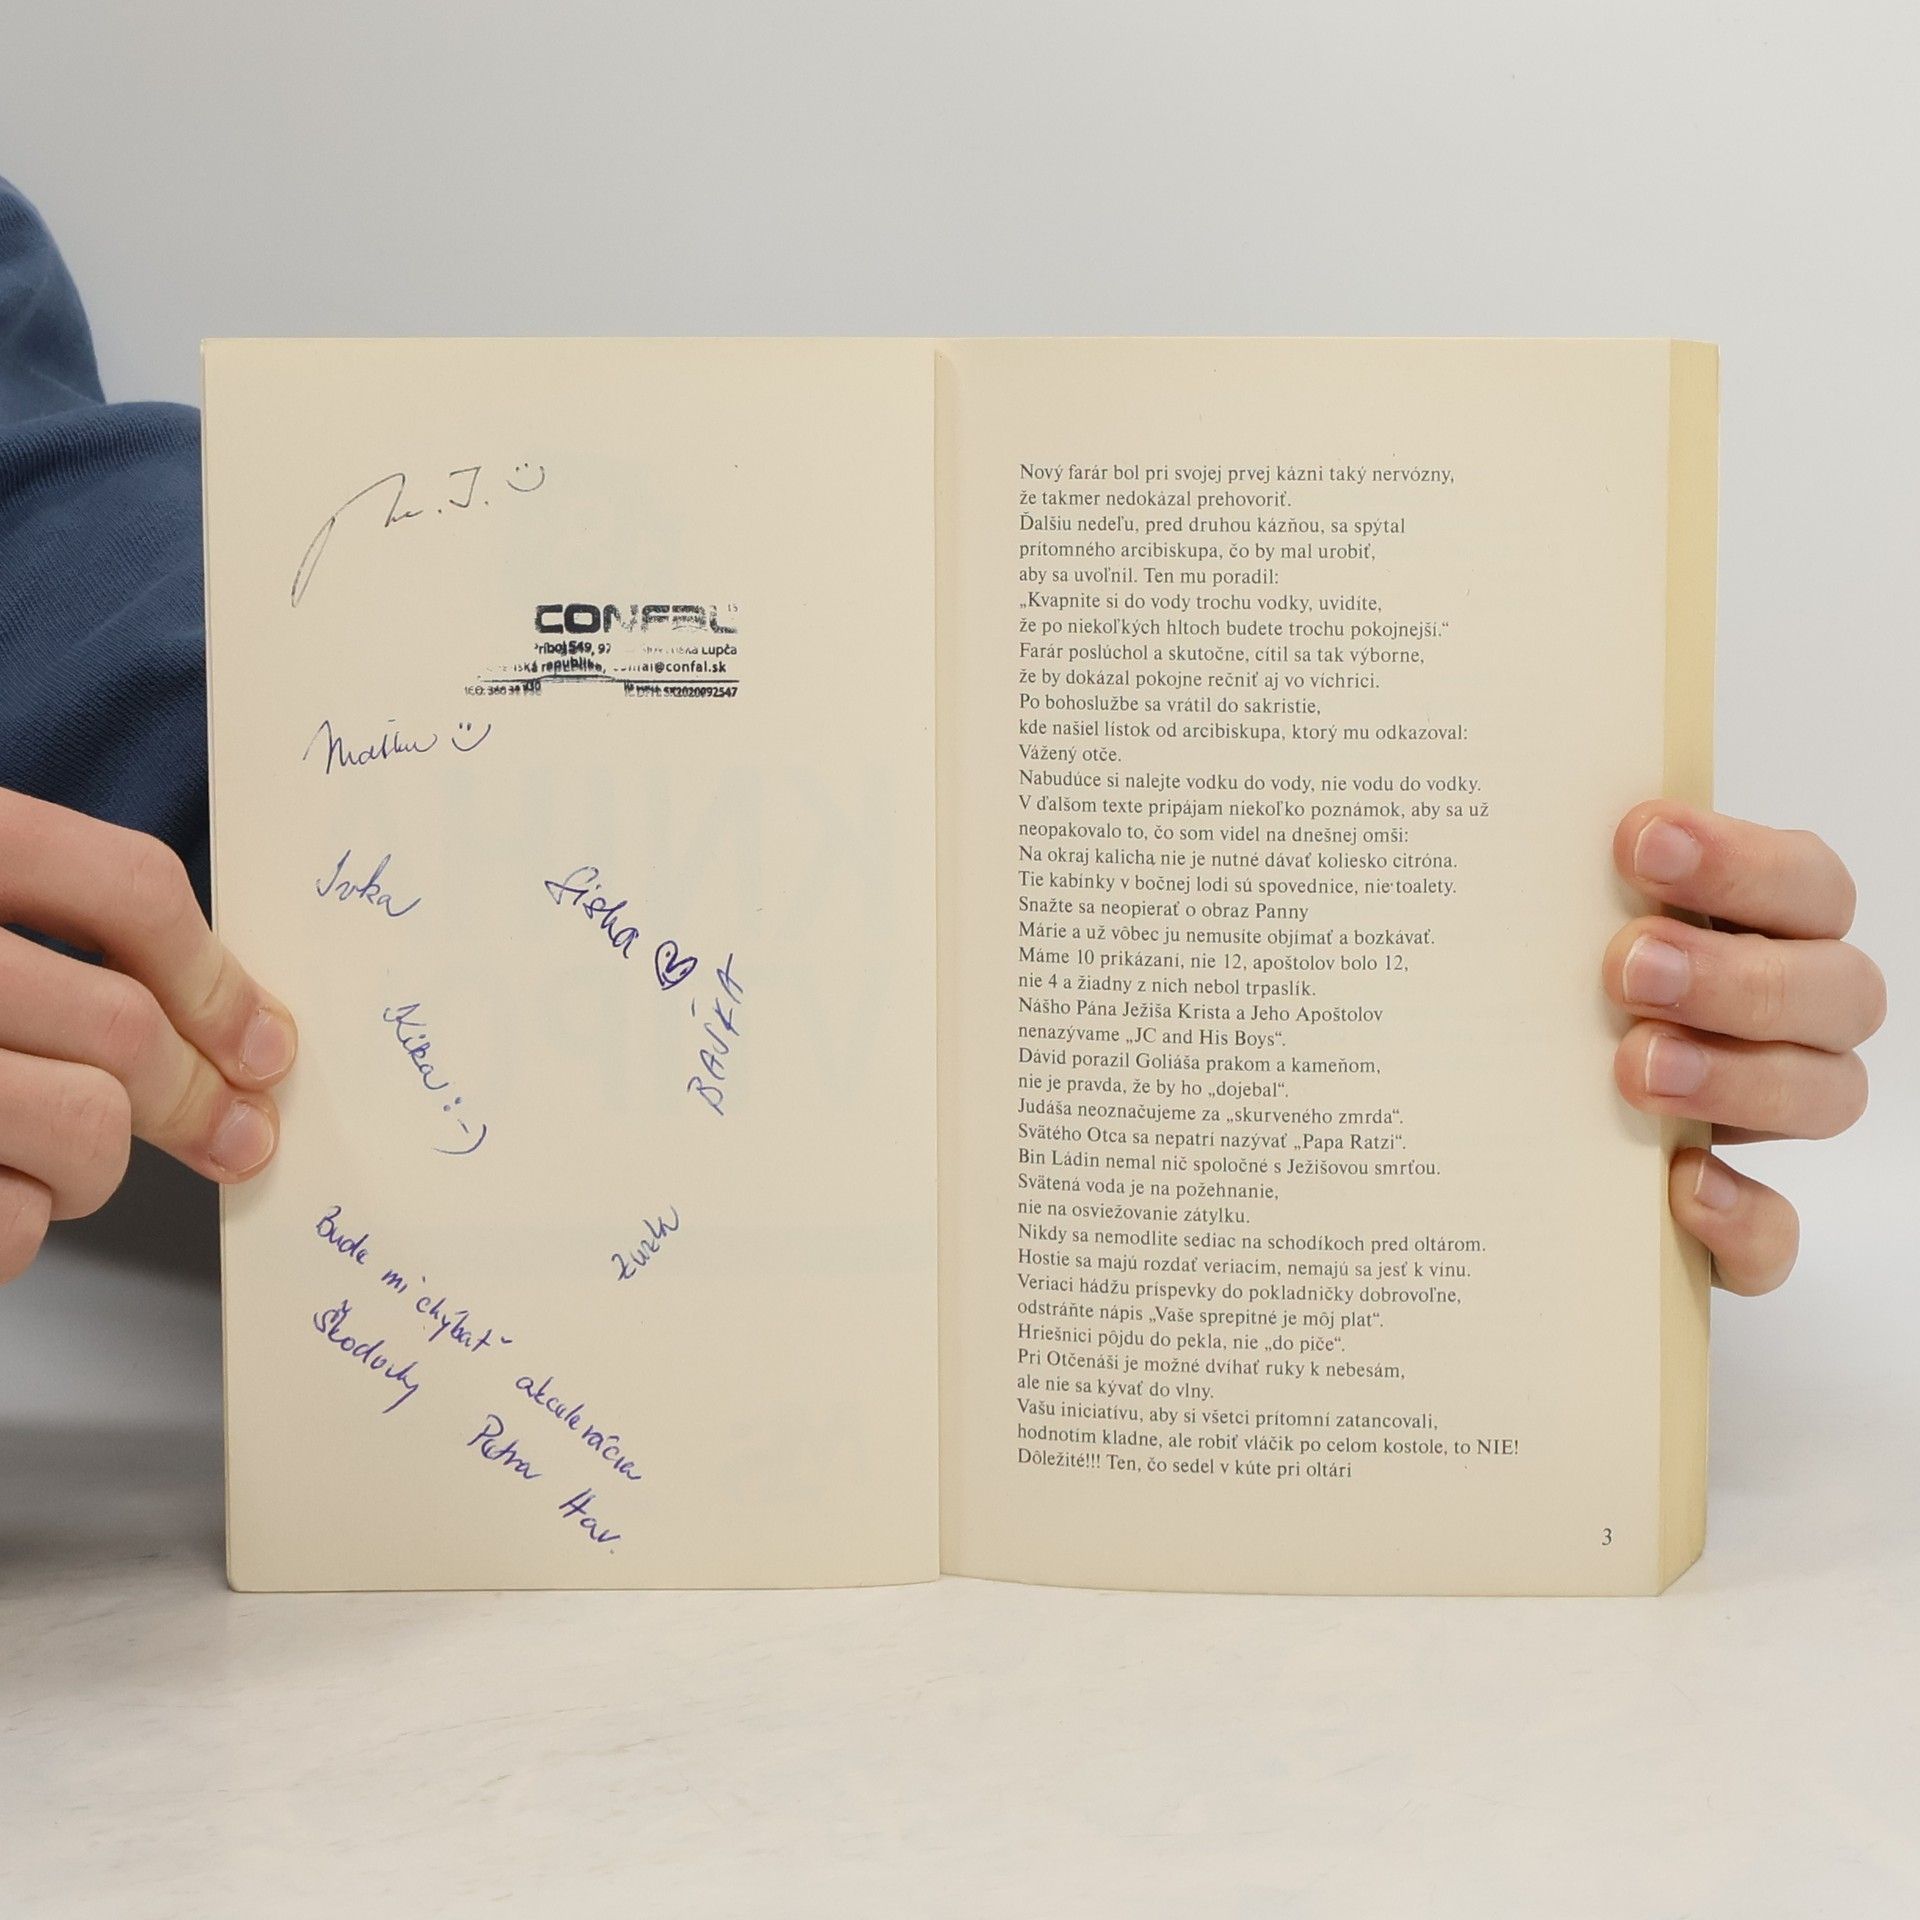 J. :)
CONFAL
549, 97 Slovenská Ľupča
republika, confal@confal.sk
IČ DPH: SK2020092547
Ivka
Siska
BAŠKA
Kika :-)
Zuzk
Bude mi chýbať akcelerácia
Škodovky
Petra Hav.
Nový farár bol pri svojej prvej kázni taký nervózny,
že takmer nedokázal prehovoriť.
Ďalšiu nedeľu, pred druhou kázňou, sa spýtal
prítomného arcibiskupa, čo by mal urobiť,
aby sa uvoľnil. Ten mu poradil:
„Kvapnite si do vody trochu vodky, uvidíte,
že po niekoľkých hltoch budete trochu pokojnejší.“
Farár poslúchol a skutočne, cítil sa tak výborne,
že by dokázal pokojne rečniť aj vo víchrici.
Po bohoslužbe sa vrátil do sakristie,
kde našiel lístok od arcibiskupa, ktorý mu odkazoval:
Vážený otče.
Nabudúce si nalejte vodku do vody, nie vodu do vodky.
V ďalšom texte pripájam niekoľko poznámok, aby sa už
neopakovalo to, čo som videl na dnešnej omši:
Na okraj kalicha nie je nutné dávať koliesko citróna.
Tie kabínky v bočnej lodi sú spovednice, nie toalety.
Snažte sa neopierať o obraz Panny
Márie a už vôbec ju nemusíte objímať a bozkávať.
Máme 10 prikázaní, nie 12, apoštolov bolo 12,
nie 4 a žiadny z nich nebol trpaslík.
Nášho Pána Ježiša Krista a Jeho Apoštolov
nenazývame „JC and His Boys“.
Dávid porazil Goliáša prakom a kameňom,
nie je pravda, že by ho „dojebal“.
Judáša neoznačujeme za „skurveného zmrda“.
Svätého Otca sa nepatrí nazývať „Papa Ratzi“.
Bin Ládin nemal nič spoločné s Ježišovou smrťou.
Svätená voda je na požehnanie,
nie na osviežovanie zátylku.
Nikdy sa nemodlite sediac na schodíkoch pred oltárom.
Hostie sa majú rozdať veriacim, nemajú sa jesť k vínu.
Veriaci hádžu príspevky do pokladničky dobrovoľne,
odstráňte nápis „Vaše sprepitné je môj plat“.
Hriešnici pôjdu do pekla, nie „do piče“.
Pri Otčenáši je možné dvíhať ruky k nebesám,
ale nie sa kývať do vlny.
Vašu iniciatívu, aby si všetci prítomní zatancovali,
hodnotím kladne, ale robiť vláčik po celom kostole, to NIE!
Dôležité!!! Ten, čo sedel v kúte pri oltári
3